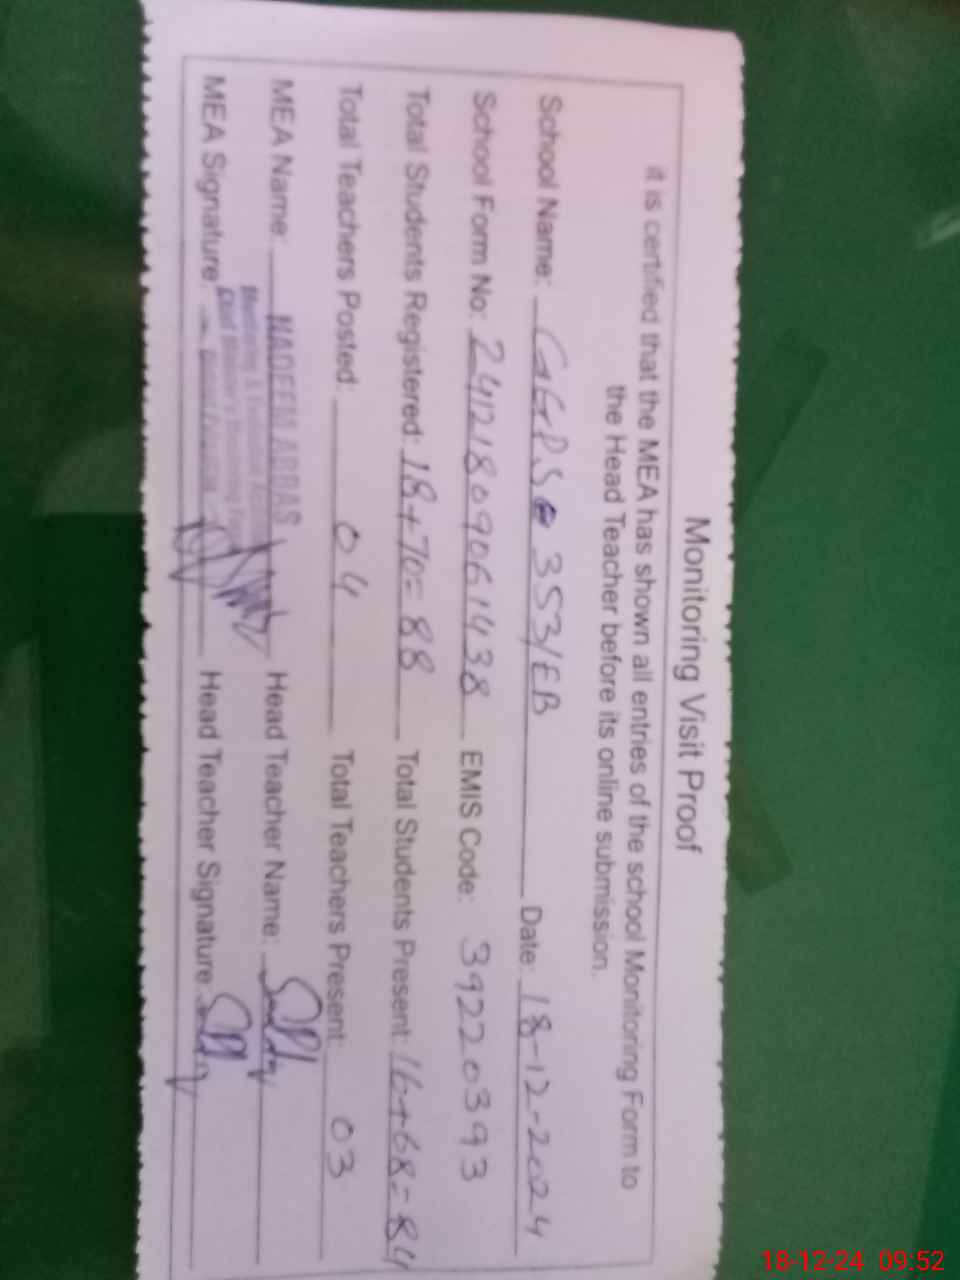 Monitoring Visit Proof
it is certified that the MEA has shown all entries of the school Monitoring Form to
the Head Teacher before its online submission.
School Name: GGPS 353/EB Date: 18-12-2024
School Form No: 24121809061438 EMIS Code: 39220393
Total Students Registered: 18+70=88 Total Students Present: 16+68=84
Total Teachers Posted: 04 Total Teachers Present: 03
MEA Name: NADEEM ABBAS Head Teacher Name:
Monitoring & Evaluation
MEA Signature: Head Teacher Signature:
18-12-24 09:52